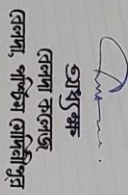 অধ্যক্ষ
বেলদা কলেজ
বেলদা, পশ্চিম মেদিনীপুর